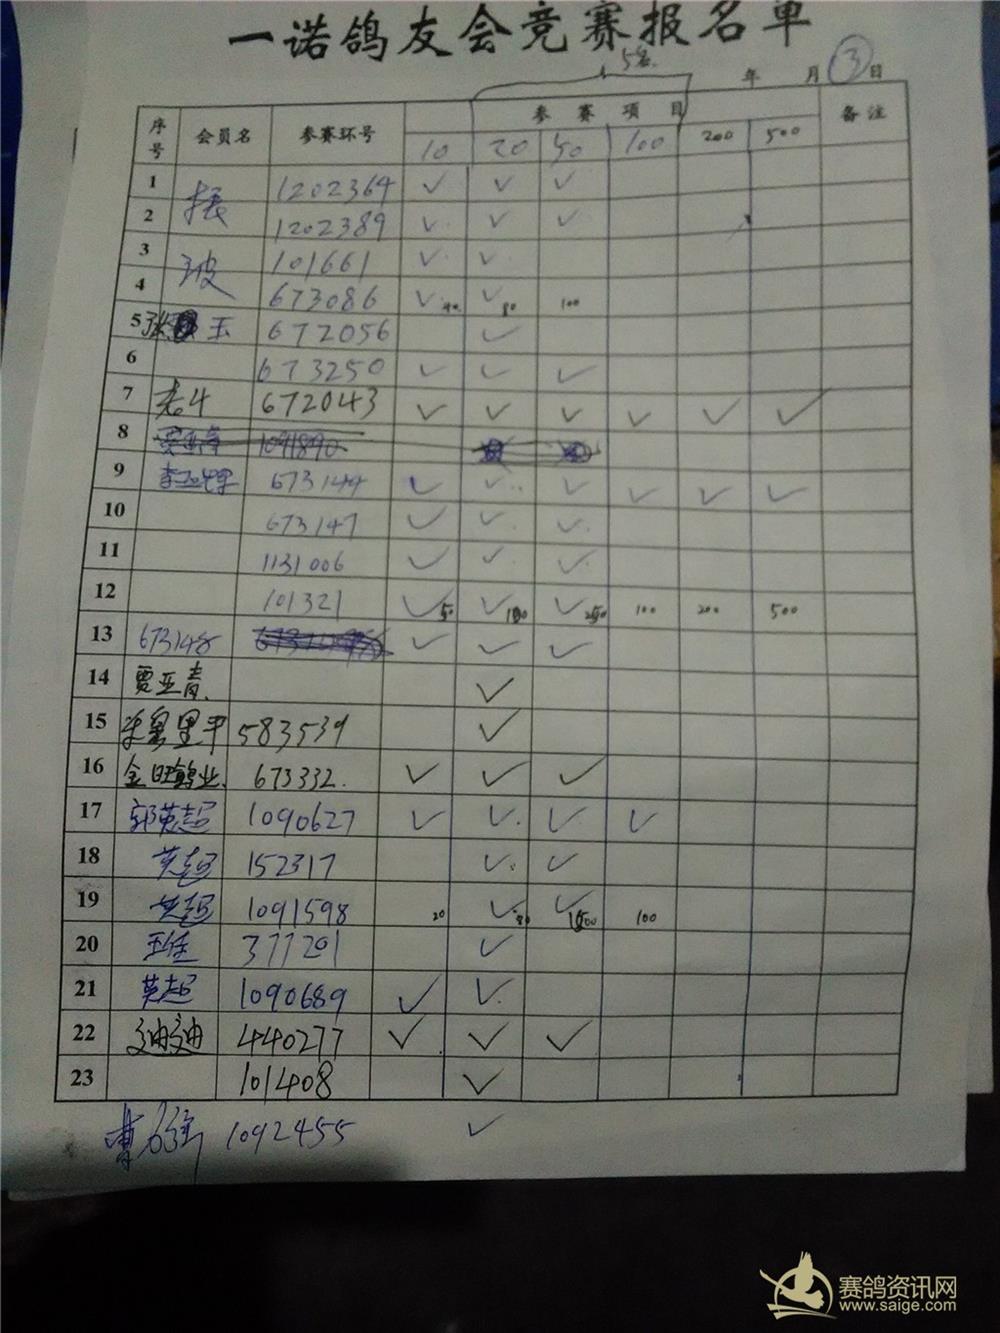 一诺鸽友会竞赛报名单
5名
年 月 ③ 日
序号 会员名 参赛环号 参赛项目 备注
10 20 50 100 200 500
1 振 1202364 ✓ ✓ ✓
2 1202389 ✓ ✓ ✓
3 波 101661 ✓ ✓
4 673086 ✓ 40 ✓ 80 100
5 玉 672056 ✓
6 673250 ✓ ✓ ✓
7 老牛 672043 ✓ ✓ ✓ ✓ ✓ ✓
8 1091890
9 673149 ✓ ✓ ✓ ✓ ✓ ✓
10 673147 ✓ ✓ ✓
11 1131006 ✓ ✓ ✓
12 101321 ✓ 50 ✓ 100 ✓ 250 100 200 500
13 673148 ✓ ✓ ✓
14 贾亚青 ✓
15 583539 ✓
16 金旺鹤业 673332 ✓ ✓ ✓
17 郭英超 1090627 ✓ ✓ ✓ ✓
18 英超 152317 ✓ ✓
19 英超 1091598 20 ✓ ✓ 100
20 377291 ✓
21 英超 1090689 ✓ ✓
22 迪迪 440277 ✓ ✓ ✓
23 101408 ✓
曹 1092455 ✓
赛鸽资讯网
www.saige.com